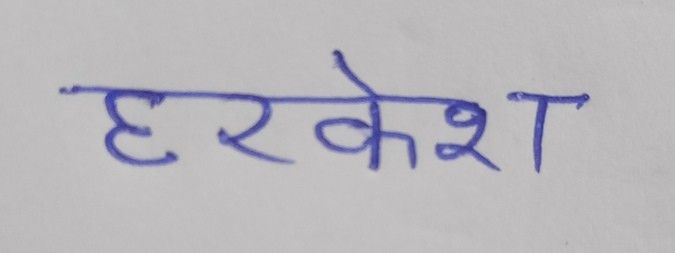 हरकेश